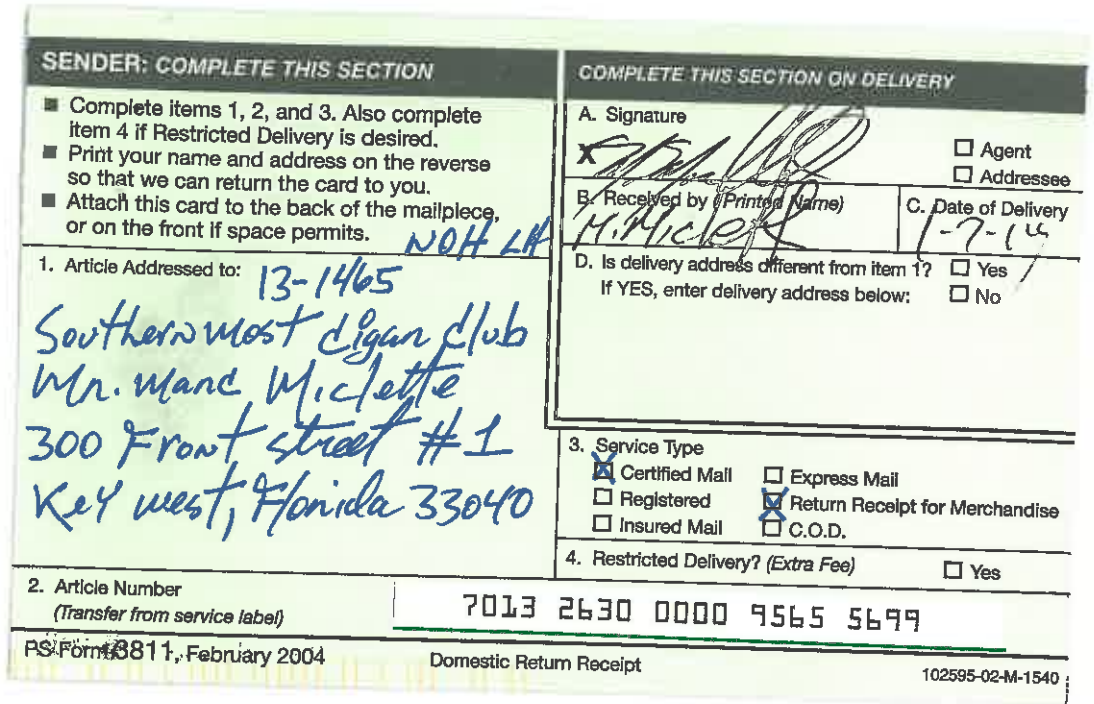 SENDER: COMPLETE THIS SECTION
■ Complete items 1, 2, and 3. Also complete
item 4 if Restricted Delivery is desired.
■ Print your name and address on the reverse
so that we can return the card to you.
■ Attach this card to the back of the mailpiece,
or on the front if space permits.
NOH LH
1. Article Addressed to:
13-1465
Southernmost Cigar Club
Mr. Marc Miclette
300 Front street #1
Key west, Florida 33040
2. Article Number
(Transfer from service label)
7013 2630 0000 9565 5699
PS Form 3811, February 2004
Domestic Return Receipt
102595-02-M-1540
COMPLETE THIS SECTION ON DELIVERY
A. Signature
X
☐ Agent
☐ Addressee
B. Received by (Printed Name)
C. Date of Delivery
1-7-14
D. Is delivery address different from item 1? ☐ Yes
If YES, enter delivery address below: ☐ No
3. Service Type
☒ Certified Mail ☐ Express Mail
☐ Registered ☒ Return Receipt for Merchandise
☐ Insured Mail ☐ C.O.D.
4. Restricted Delivery? (Extra Fee) ☐ Yes